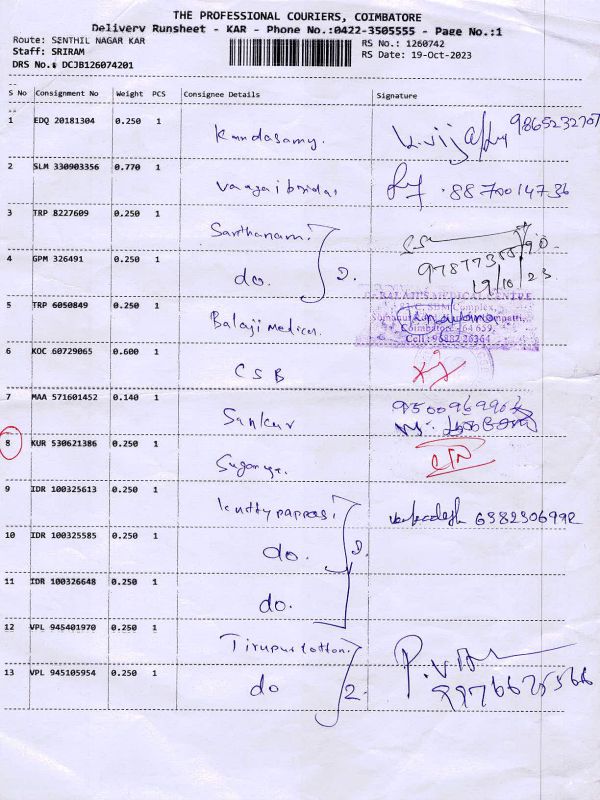 THE PROFESSIONAL COURIERS, COIMBATORE
Delivery Runsheet - KAR - Phone No.:0422-3505555 - Page No.:1
Route: SENTHIL NAGAR KAR
RS No.: 1260742
Staff: SRIRAM
RS Date: 19-Oct-2023
DRS No.: DCJB126074201
S No Consignment No Weight PCS Consignee Details Signature
1 EDQ 20181304 0.250 1 Kandasamy. 9865232707
2 SLM 330903356 0.770 1 8870014736
3 TRP 8227609 0.250 1 Santhanam
4 GPM 326491 0.250 1 do. 2. 19/10/23
5 TRP 6050849 0.250 1 Balaji Medical
BALAJI'S MEDICAL CENTRE
SBM Complex,
Coimbatore - 641 659.
Cell: 96882 26364
6 KOC 60729065 0.600 1 CSB
7 MAA 571601452 0.140 1 Sankur
8 KUR 530621386 0.250 1 Suganya.
9 IDR 100325613 0.250 1 kuttypappas. Venkadesh 6382306992
10 IDR 100325585 0.250 1 do.
11 IDR 100326648 0.250 1 do.
12 VPL 945401970 0.250 1 Tirupur Cotton.
13 VPL 945105954 0.250 1 do 2.